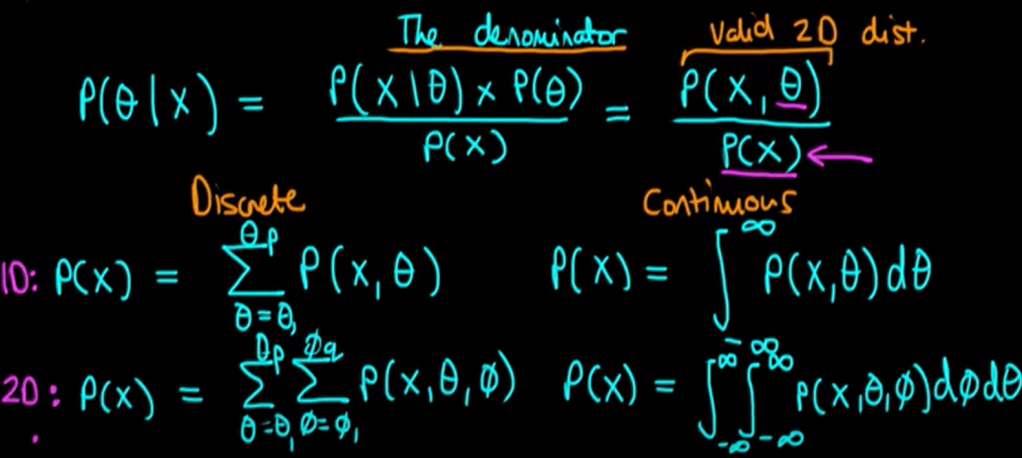 The denominator valid 2D dist.
P(θ|X) = P(X|θ) × P(θ) / P(X) = P(X, θ) / P(X) ←
Discrete Continuous
1D: P(X) = ∑_{θ=θ₁}^{θp} P(X, θ) P(X) = ∫_{-∞}^{∞} P(X,θ)dθ
2D: P(X) = ∑_{θ=θ₁}^{θp} ∑_{ø=ø₁}^{øq} P(X,θ,ø) P(X) = ∫_{-∞}^{∞} ∫_{-∞}^{∞} P(X,θ,ø)dødθ